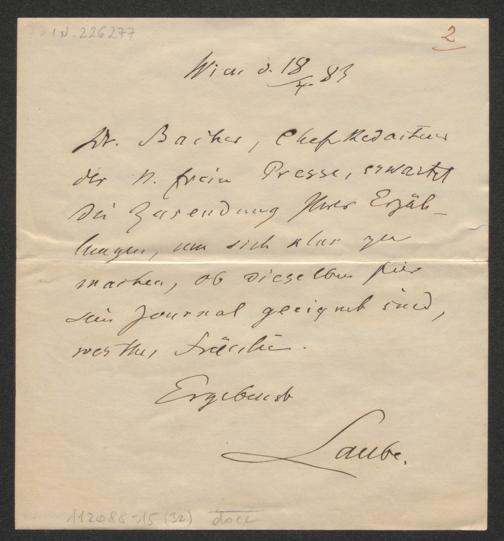 IN-226277
2
Wien d. 18/4 83
Dr. Bacher, Chefredacteur
der n. freien Presse, erwartet
die Zusendung Ihrer Erzäh-
lungen, um sich klar zu
machen, ob dieselben für
sein Journal geeignet sind,
werthes Fräulein.
Ergebenst
Laube.
112088-15 (32)